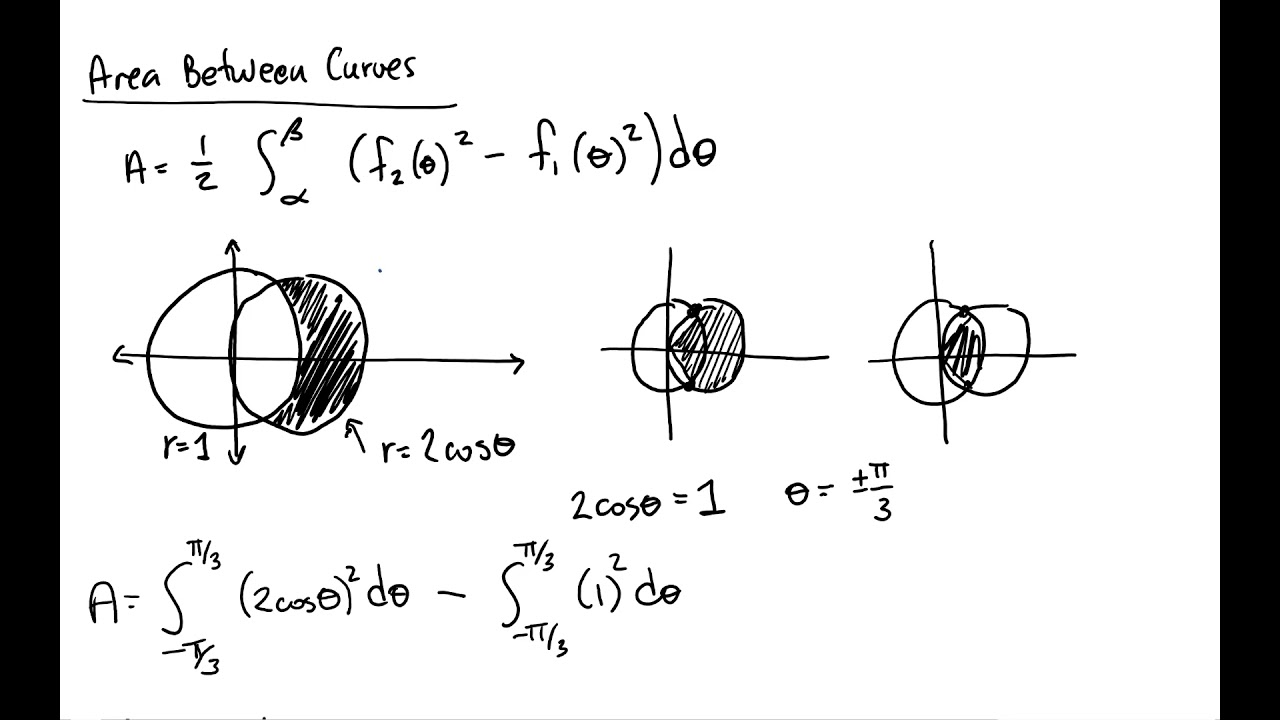 Area Between Curves
A = 1/2 ∫_α^β (f₂(θ)² − f₁(θ)²)dθ
r=1
r=2cosθ
2cosθ = 1 θ = ±π/3
A = ∫_{-π/3}^{π/3} (2cosθ)² dθ − ∫_{-π/3}^{π/3} (1)² dθ